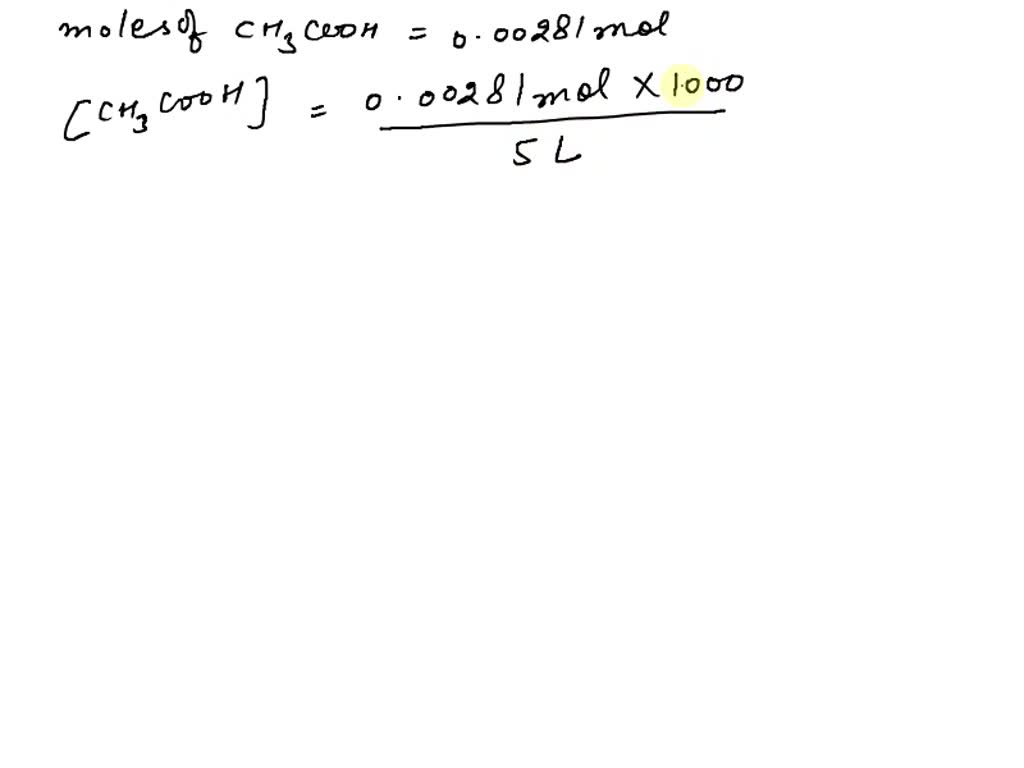 moles of CH3COOH = 0.00281 mol
[CH3COOH] = 0.00281 mol X 1000
5 L